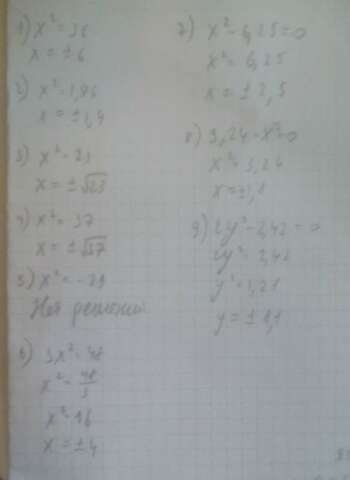 1) x² = 36
x = ±6
2) x² = 1,96
x = ±1,4
3) x² = 23
x = ±√23
4) x² = 37
x = ±√37
5) x² = -29
Нет решений
6) 3x² = 48
x² = 48/3
x² = 16
x = ±4
7) x² - 6,25 = 0
x² = 6,25
x = ±2,5
8) 3,24 - x² = 0
x² = 3,24
x = ±1,8
9) 2y² - 2,42 = 0
2y² = 2,42
y² = 1,21
y = ±1,1